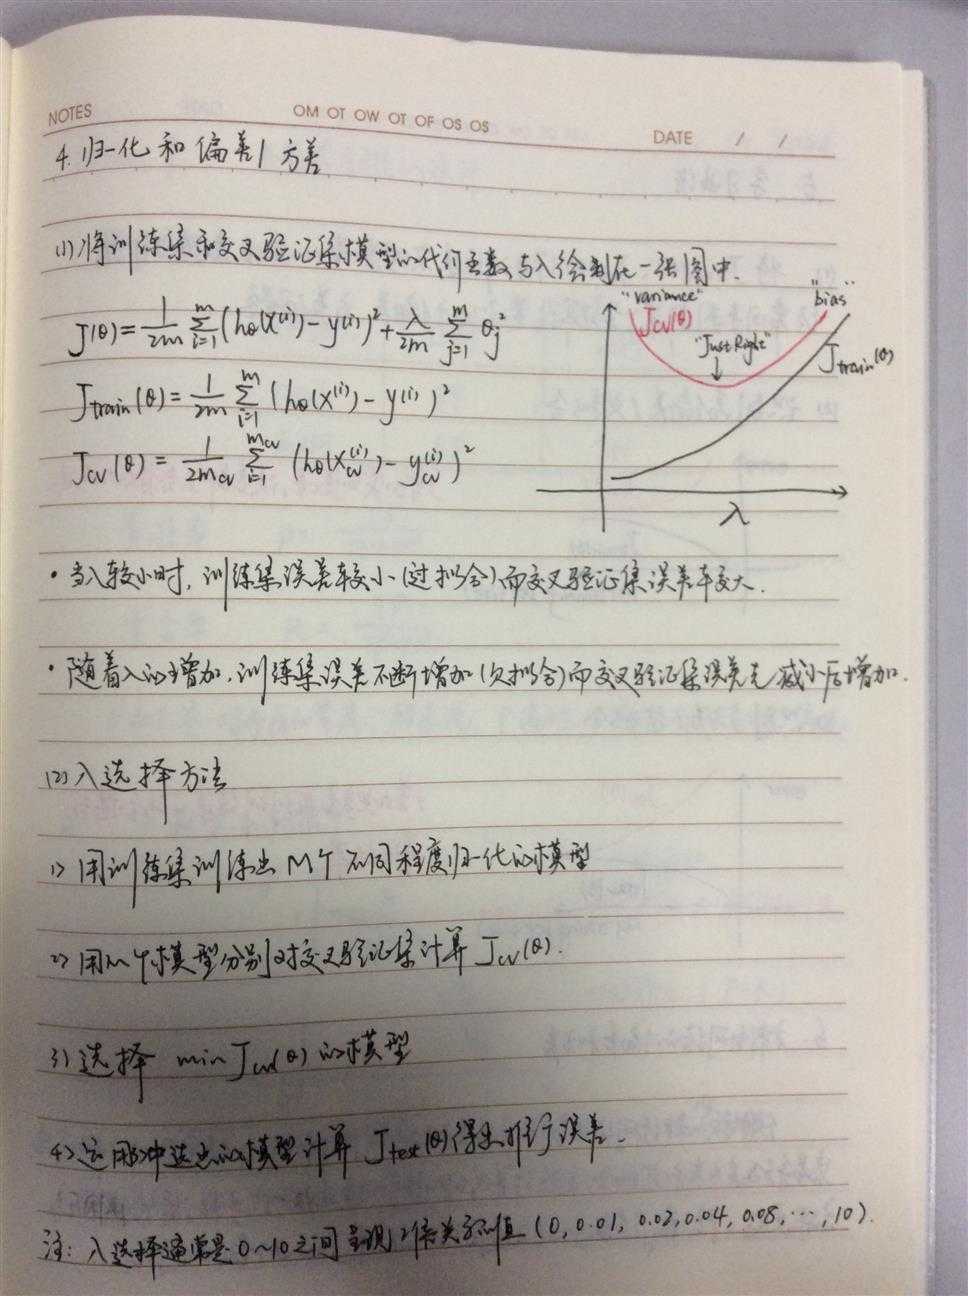 NOTES
OM OT OW OT OF OS OS
DATE / /
4. 归一化和偏差/方差
(1) 将训练集和交叉验证集模型的代价函数与λ绘制在一张图中.
J(θ) = 1/2m Σ_{i=1}^{m} (h_θ(x^{(i)}) - y^{(i)})^2 + λ/2m Σ_{j=1}^{m} θ_j^2
J_train(θ) = 1/2m Σ_{i=1}^{m} (h_θ(x^{(i)}) - y^{(i)})^2
J_cv(θ) = 1/2m_cv Σ_{i=1}^{m_cv} (h_θ(x_cv^{(i)}) - y_cv^{(i)})^2
"variance"
"bias"
J_cv(θ)
"Just Right"
J_train(θ)
λ
· 当λ较小时, 训练集误差较小(过拟合)而交叉验证集误差较大.
· 随着λ的增加, 训练集误差不断增加(欠拟合)而交叉验证集误差先减小后增加.
(2) λ选择方法
1> 用训练集训练出M个不同程度归一化的模型
2> 用M个模型分别对交叉验证集计算J_cv(θ).
3) 选择 min J_cv(θ) 的模型
4> 运用3>中选出的模型计算 J_test(θ) 得出推行误差.
注: λ选择通常是 0~10之间呈现2倍关系的值 (0, 0.01, 0.02, 0.04, 0.08, ⋯, 10).